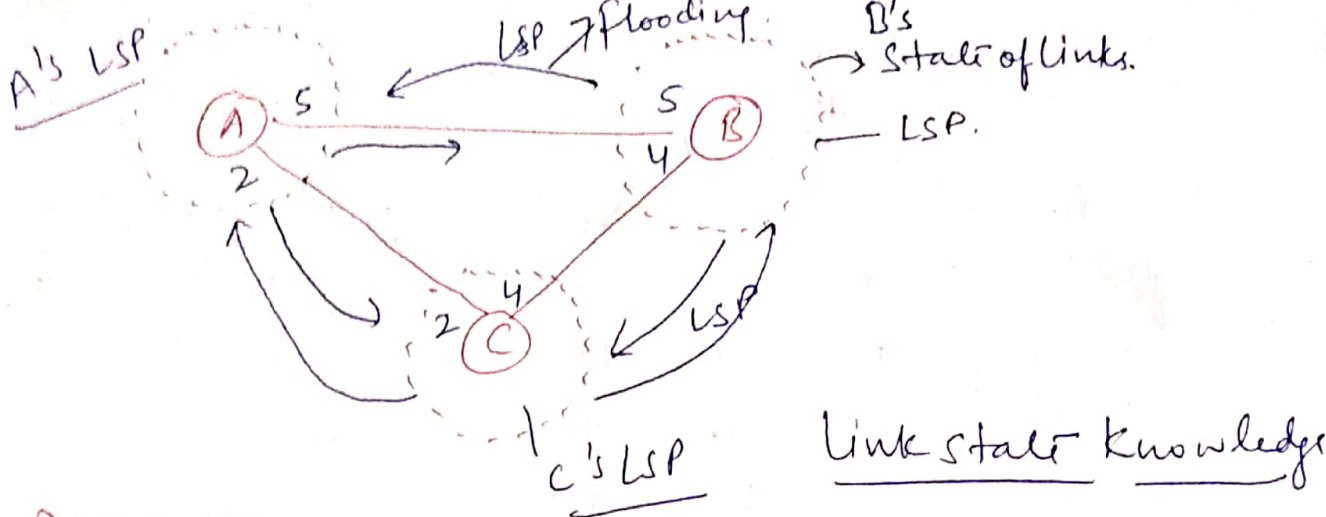 A's LSP
LSP → flooding.
B's
→ State of links.
A
5
5
B
— LSP.
2
4
4
2
C
LSP
C's LSP
Link state Knowledge